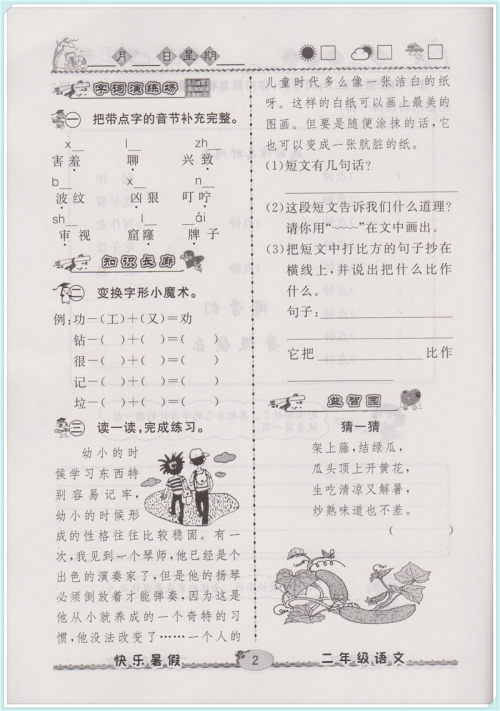 月 日 星期
字词演练场
一 把带点字的音节补充完整。
x__ l__ zh__
害羞 聊 兴致
b__ x__ n__
波纹 凶狠 叮咛
sh__ l__ __ái
审视 窟窿 牌子
知识长廊
二 变换字形小魔术。
例:功－(工)＋(又)＝劝
钻－( )＋( )＝( )
很－( )＋( )＝( )
记－( )＋( )＝( )
垃－( )＋( )＝( )
三 读一读,完成练习。
幼小的时
候学习东西特
别容易记牢,
幼小的时候形
成的性格往往比较稳固。有一
次,我见到一个琴师,他已经是个
出色的演奏家了,但是他的扬琴
必须倒放着才能弹奏,因为这是
他从小就养成的一个奇特的习
惯,他没法改变了……一个人的
儿童时代多么像一张洁白的纸
呀。这样的白纸可以画上最美的
图画。但要是随便涂抹的话,它
也可以变成一张肮脏的纸。
(1)短文有几句话?
(2)这段短文告诉我们什么道理?
请你用“﹏﹏”在文中画出。
(3)把短文中打比方的句子抄在
横线上,并说出把什么比作
什么。
句子:
它把 比作
益智园
猜一猜
架上藤,结绿瓜,
瓜头顶上开黄花,
生吃清凉又解暑,
炒熟味道也不差。
( )
快乐暑假 2 二年级语文